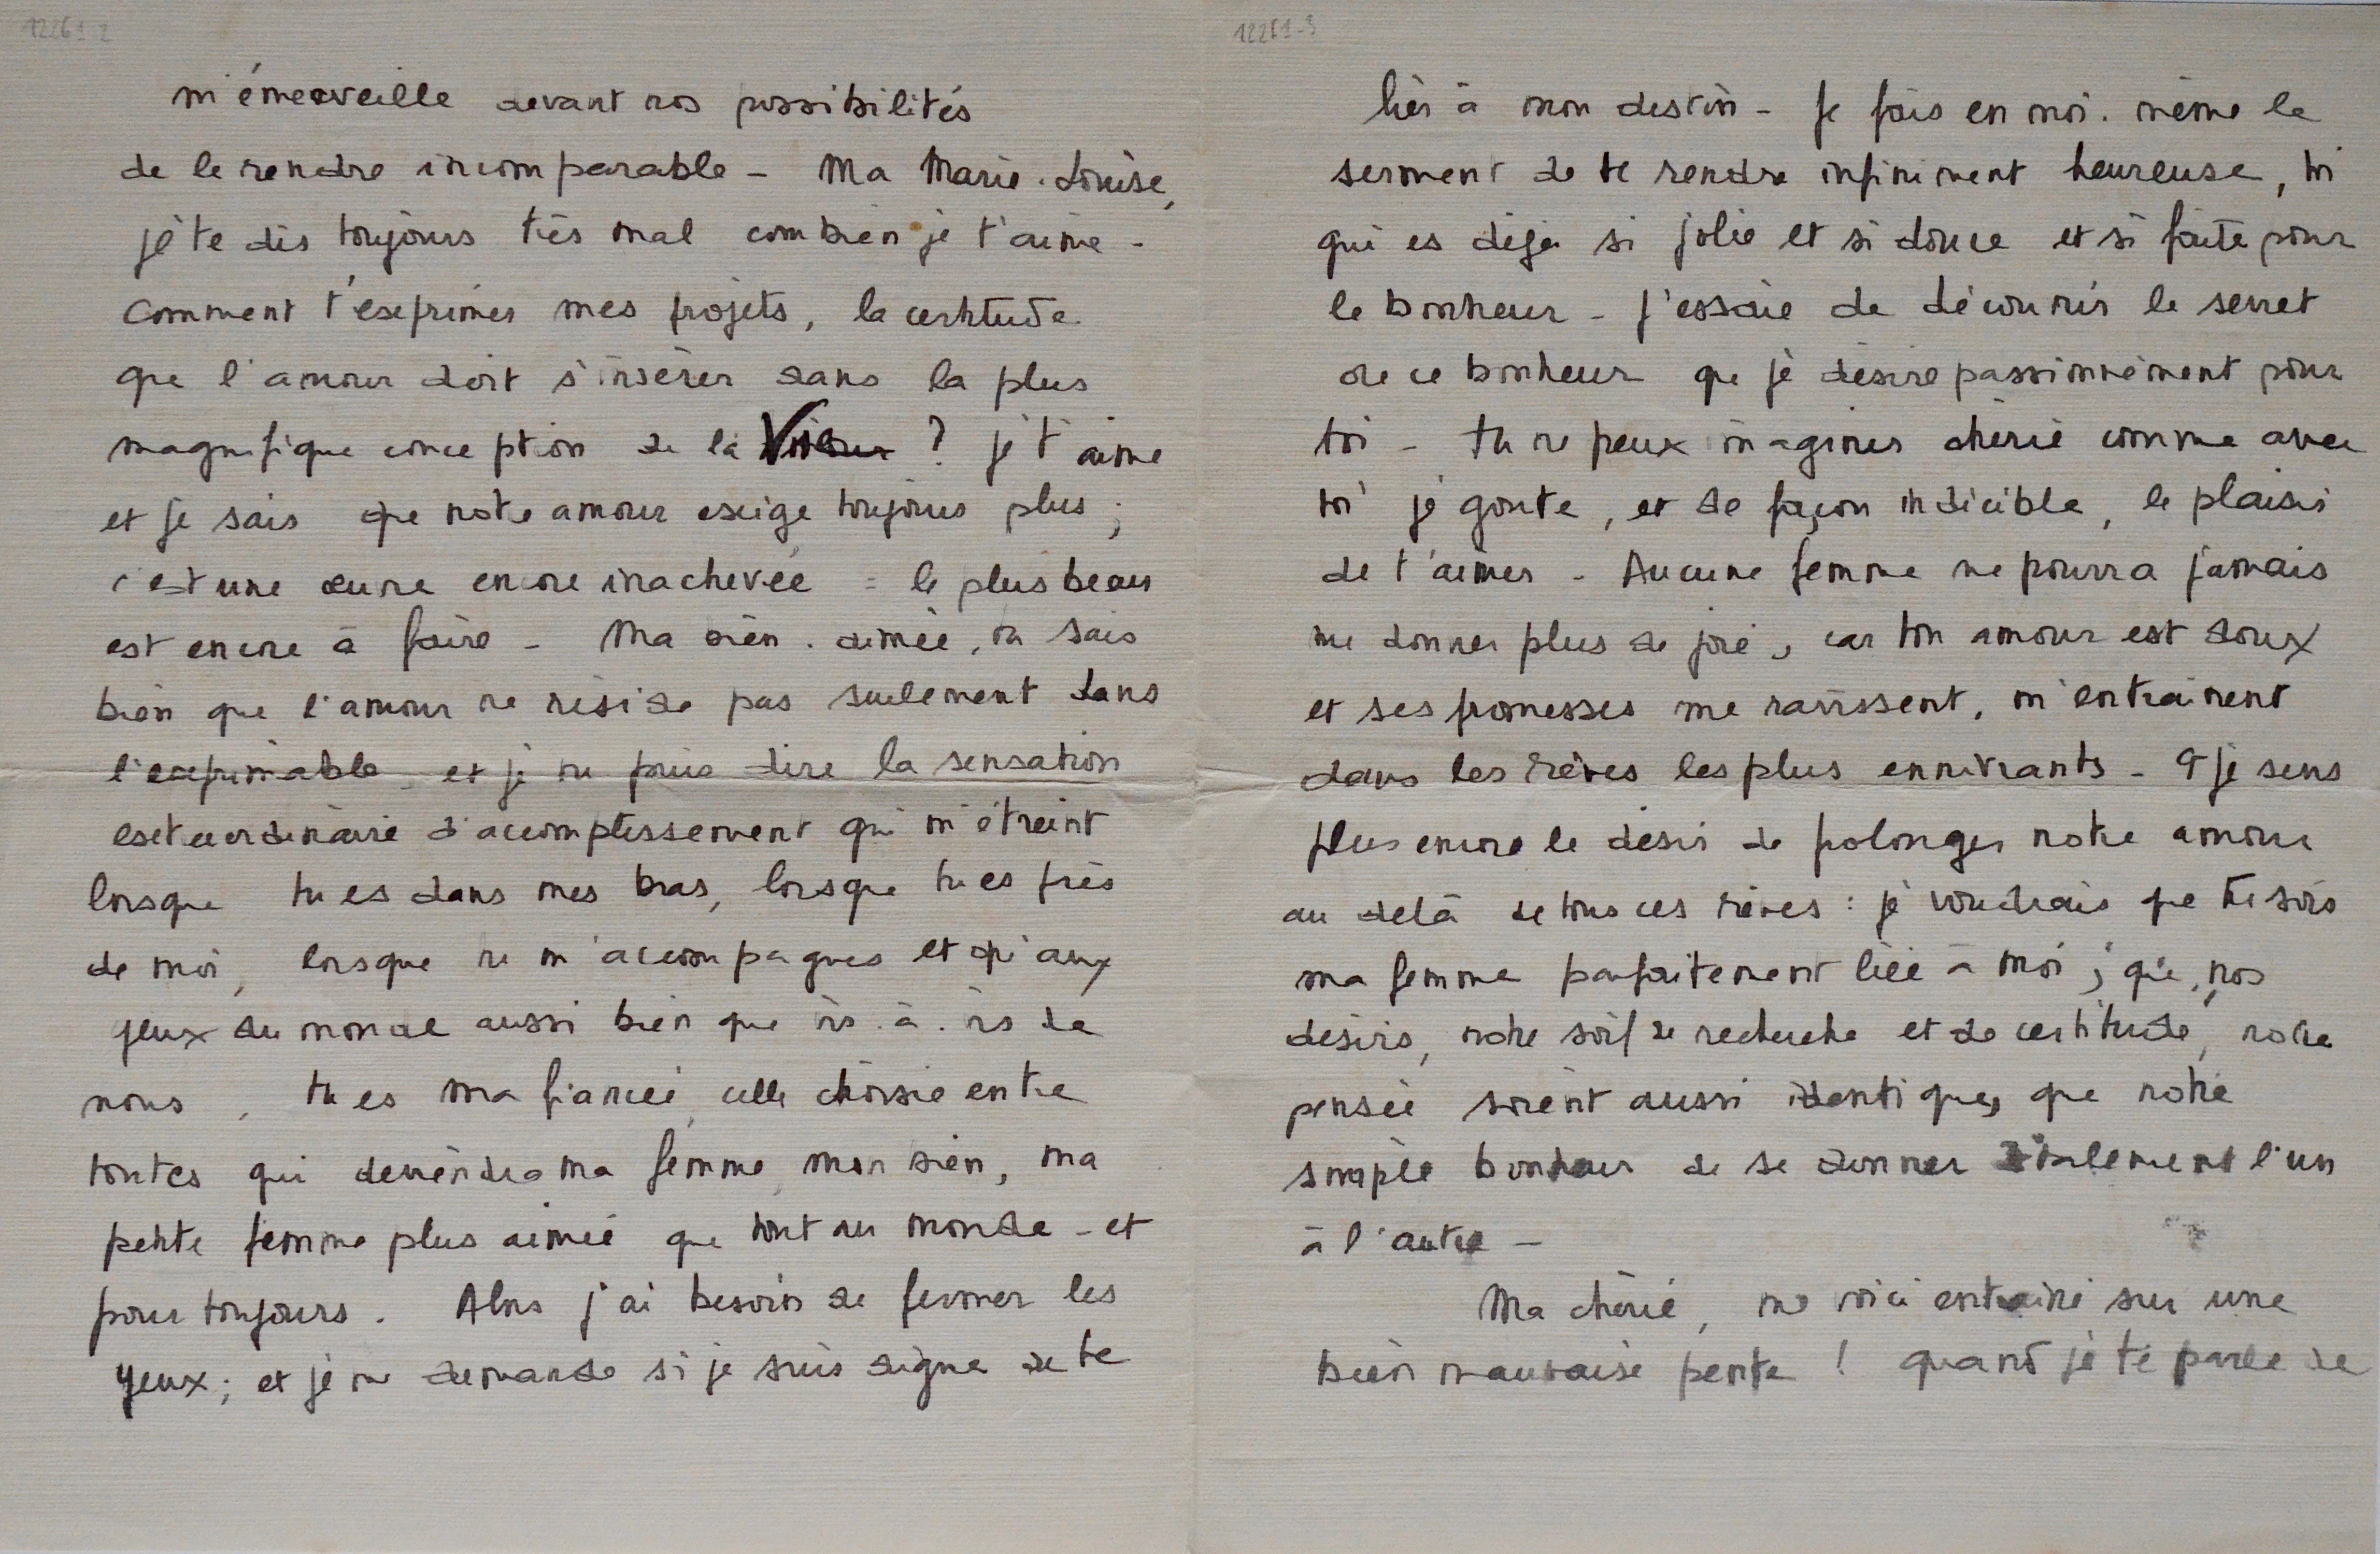 12261-2
m'émerveille devant nos possibilités
de le rendre incomparable - Ma Marie-Louise,
je te dis toujours très mal combien je t'aime -
Comment t'exprimer mes projets, la certitude
que l'amour doit s'insérer dans la plus
magnifique conception de la ? je t'aime
et je sais que notre amour exige toujours plus ;
c'est une œuvre encore inachevée = le plus beau
est encore à faire - Ma bien-aimée, tu sais
bien que l'amour ne réside pas seulement dans
l'exprimable et je ne puis dire la sensation
extraordinaire d'accomplissement qui m'étreint
lorsque tu es dans mes bras, lorsque tu es près
de moi, lorsque tu m'accompagnes et qu'aux
yeux du monde aussi bien que vis-à-vis de
nous, tu es ma fiancée, celle choisie entre
toutes qui deviendra ma femme, mon bien, ma
petite femme plus aimée que tout au monde - et
pour toujours. Alors j'ai besoin de fermer les
yeux ; et je me demande si je suis digne de te
12261-3
lier à mon destin - Je fais en moi-même le
serment de te rendre infiniment heureuse, toi
qui es déjà si jolie et si douce et si faite pour
le bonheur - J'essaie de découvrir le secret
de ce bonheur que je désire passionnément pour
toi - Tu ne peux imaginer chérie comme avec
toi je goute, et de façon indicible, le plaisir
de t'aimer - Aucune femme ne pourra jamais
me donner plus de joie, car ton amour est doux
et ses promesses me ravissent, m'entrainent
dans les rêves les plus ennivrants - Et je sens
plus encore le désir de polonger notre amour
au delà de tous ces rêves : je voudrais que tu sois
ma femme parfaitement liée à moi ; que, nos
désirs, notre soif de recherche et de certitude, notre
pensée soient aussi identiques que notre
simple bonheur de se donner totalement l'un
à l'autre -
Ma chérie, me voici entrainé sur une
bien mauvaise pente ! quand je te parle de